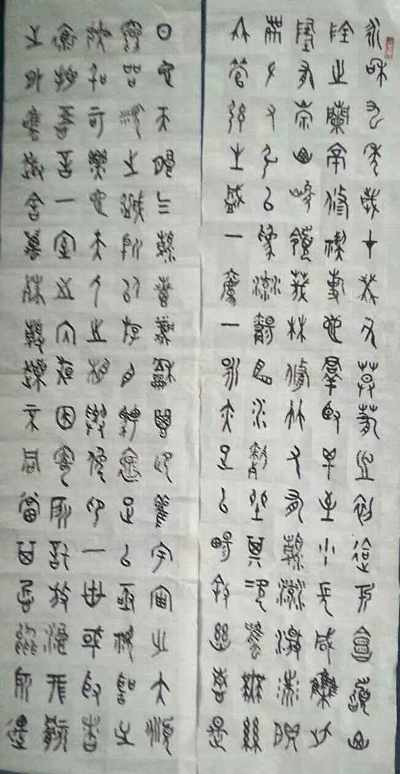 永和九年歲在癸丑暮春之初會于會稽山
陰之蘭亭修禊事也群賢畢至少長咸集此
地有崇山峻嶺茂林修竹又有清流激湍映
帶左右引以為流觴曲水列坐其次雖無絲
竹管弦之盛一觴一詠亦足以暢敘幽情是
日也天朗氣清惠風和暢仰觀宇宙之大俯
察品類之盛所以游目騁懷足以極視聽之
娛信可樂也夫人之相與俯仰一世或取諸
懷抱悟言一室之內或因寄所託放浪形骸
之外雖趣舍萬殊靜躁不同當其欣於所遇